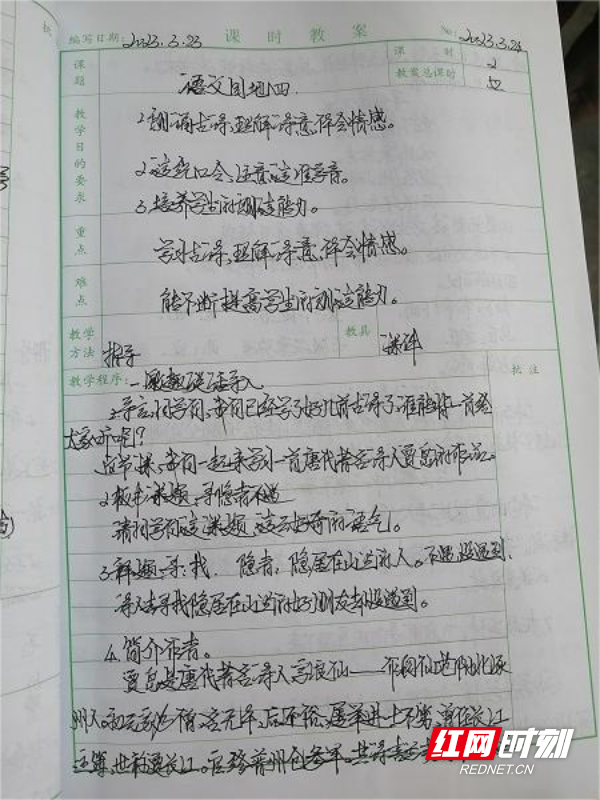 编写日期: 2023.3.23 课时教案 No: 2023.3.24
课题 语文园地四 课时 2
教案总课时 52
教学目的要求 1.朗诵古诗,理解诗意,体会情感。
2.读绕口令,注意读准字音。
3.培养学生的朗读能力。
重点 学习古诗,理解诗意,体会情感。
难点 能不断提高学生的朗读能力。
教学方法 指导 教具 课件
教学程序: 一、激趣谈话导入 批注
1.导言:同学们,我们已经学了好几首古诗了,谁能背一首给
大家听呢?
这节课,我们一起来学习一首唐代著名诗人贾岛的作品。
2.板书课题:寻隐者不遇
请同学们读课题,读出好奇的语气。
3.解题:寻:找 隐者:隐居在山林的人。不遇:没遇到,
诗人去寻找隐居在山林的好朋友却没遇到。
4.简介作者。
贾岛是唐代著名诗人,字浪仙——
州人。初
红网时刻
REDNET.CN